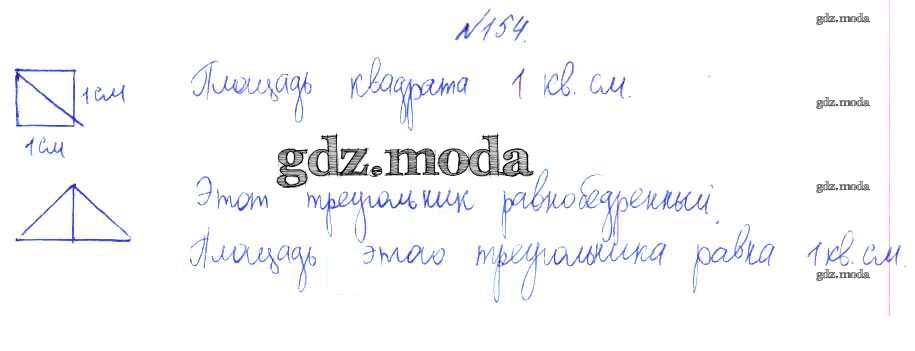 №154.
gdz.moda
1см
Площадь квадрата 1 кв. см.
gdz.moda
1см
gdz.moda
Этот треугольник равнобедренный.
gdz.moda
Площадь этого треугольника равна 1 кв. см.
gdz.moda